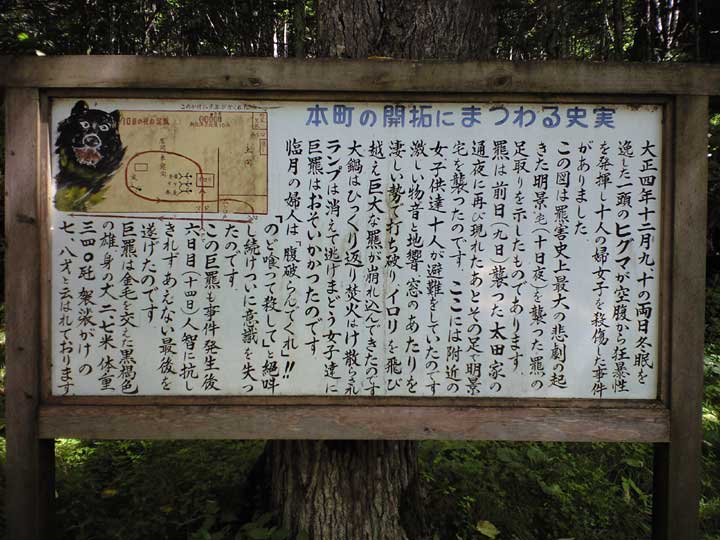 本町の開拓にまつわる史実
大正四年十二月九、十の両日冬眠を
逸した一頭のヒグマが空腹から狂暴性
を発揮し十人の婦女子を殺傷した事件
がありました
この図は羆害史上最大の悲劇の起
きた明景宅(十日夜)を襲った羆の
足取りを示したものであります
羆は前日(九日)襲った太田家の
通夜に再び現れたあとその足で明景
宅を襲ったのです ここには附近の
女子供達十人が避難をしていたのです
激しい物音と地響、窓のあたりを
凄しい勢で打ち破りイロリを飛び
越え巨大な羆が崩れ込んできたのです
大鍋はひっくり返り焚火はけ散らされ
ランプは消えて逃げまどう女子達に
巨羆はおそいかかったのです
臨月の婦人は「腹破らんでくれ」!!
「のど喰って殺して」と絶叫
し続けついに意識を失っ
たのです
この巨羆も事件発生後
六日目(十四日)人智に抗し
きれずあえない最後を
遂げたのです
巨羆は金毛を交えた黒褐色
の雄、身の丈二・七米、体重
三四〇瓩 袈裟がけの
七、八才と云はれております